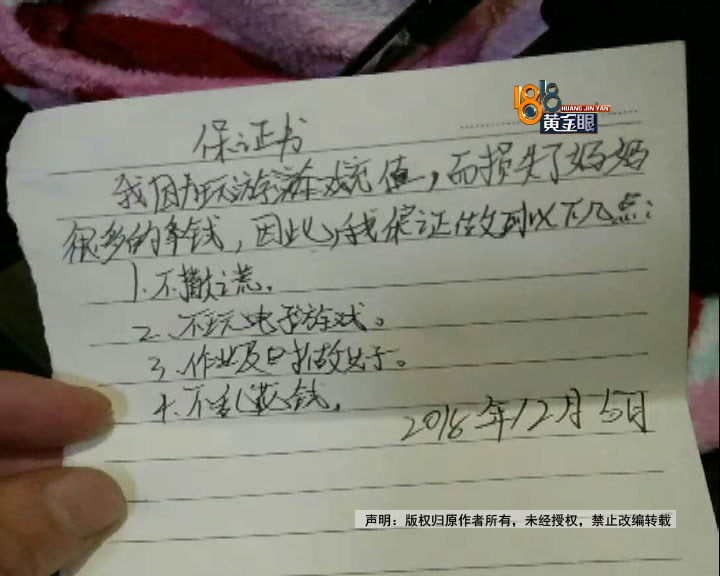 1818
HUANG JIN YAN
黄金眼
保证书
我因为玩游戏充值，而损失了妈妈
很多的钱，因此，我保证做到以下几点：
1.不撒谎。
2.不玩电子游戏。
3.作业及时做好。
4.不乱花钱。
2018年12月5日
声明：版权归原作者所有，未经授权，禁止改编转载